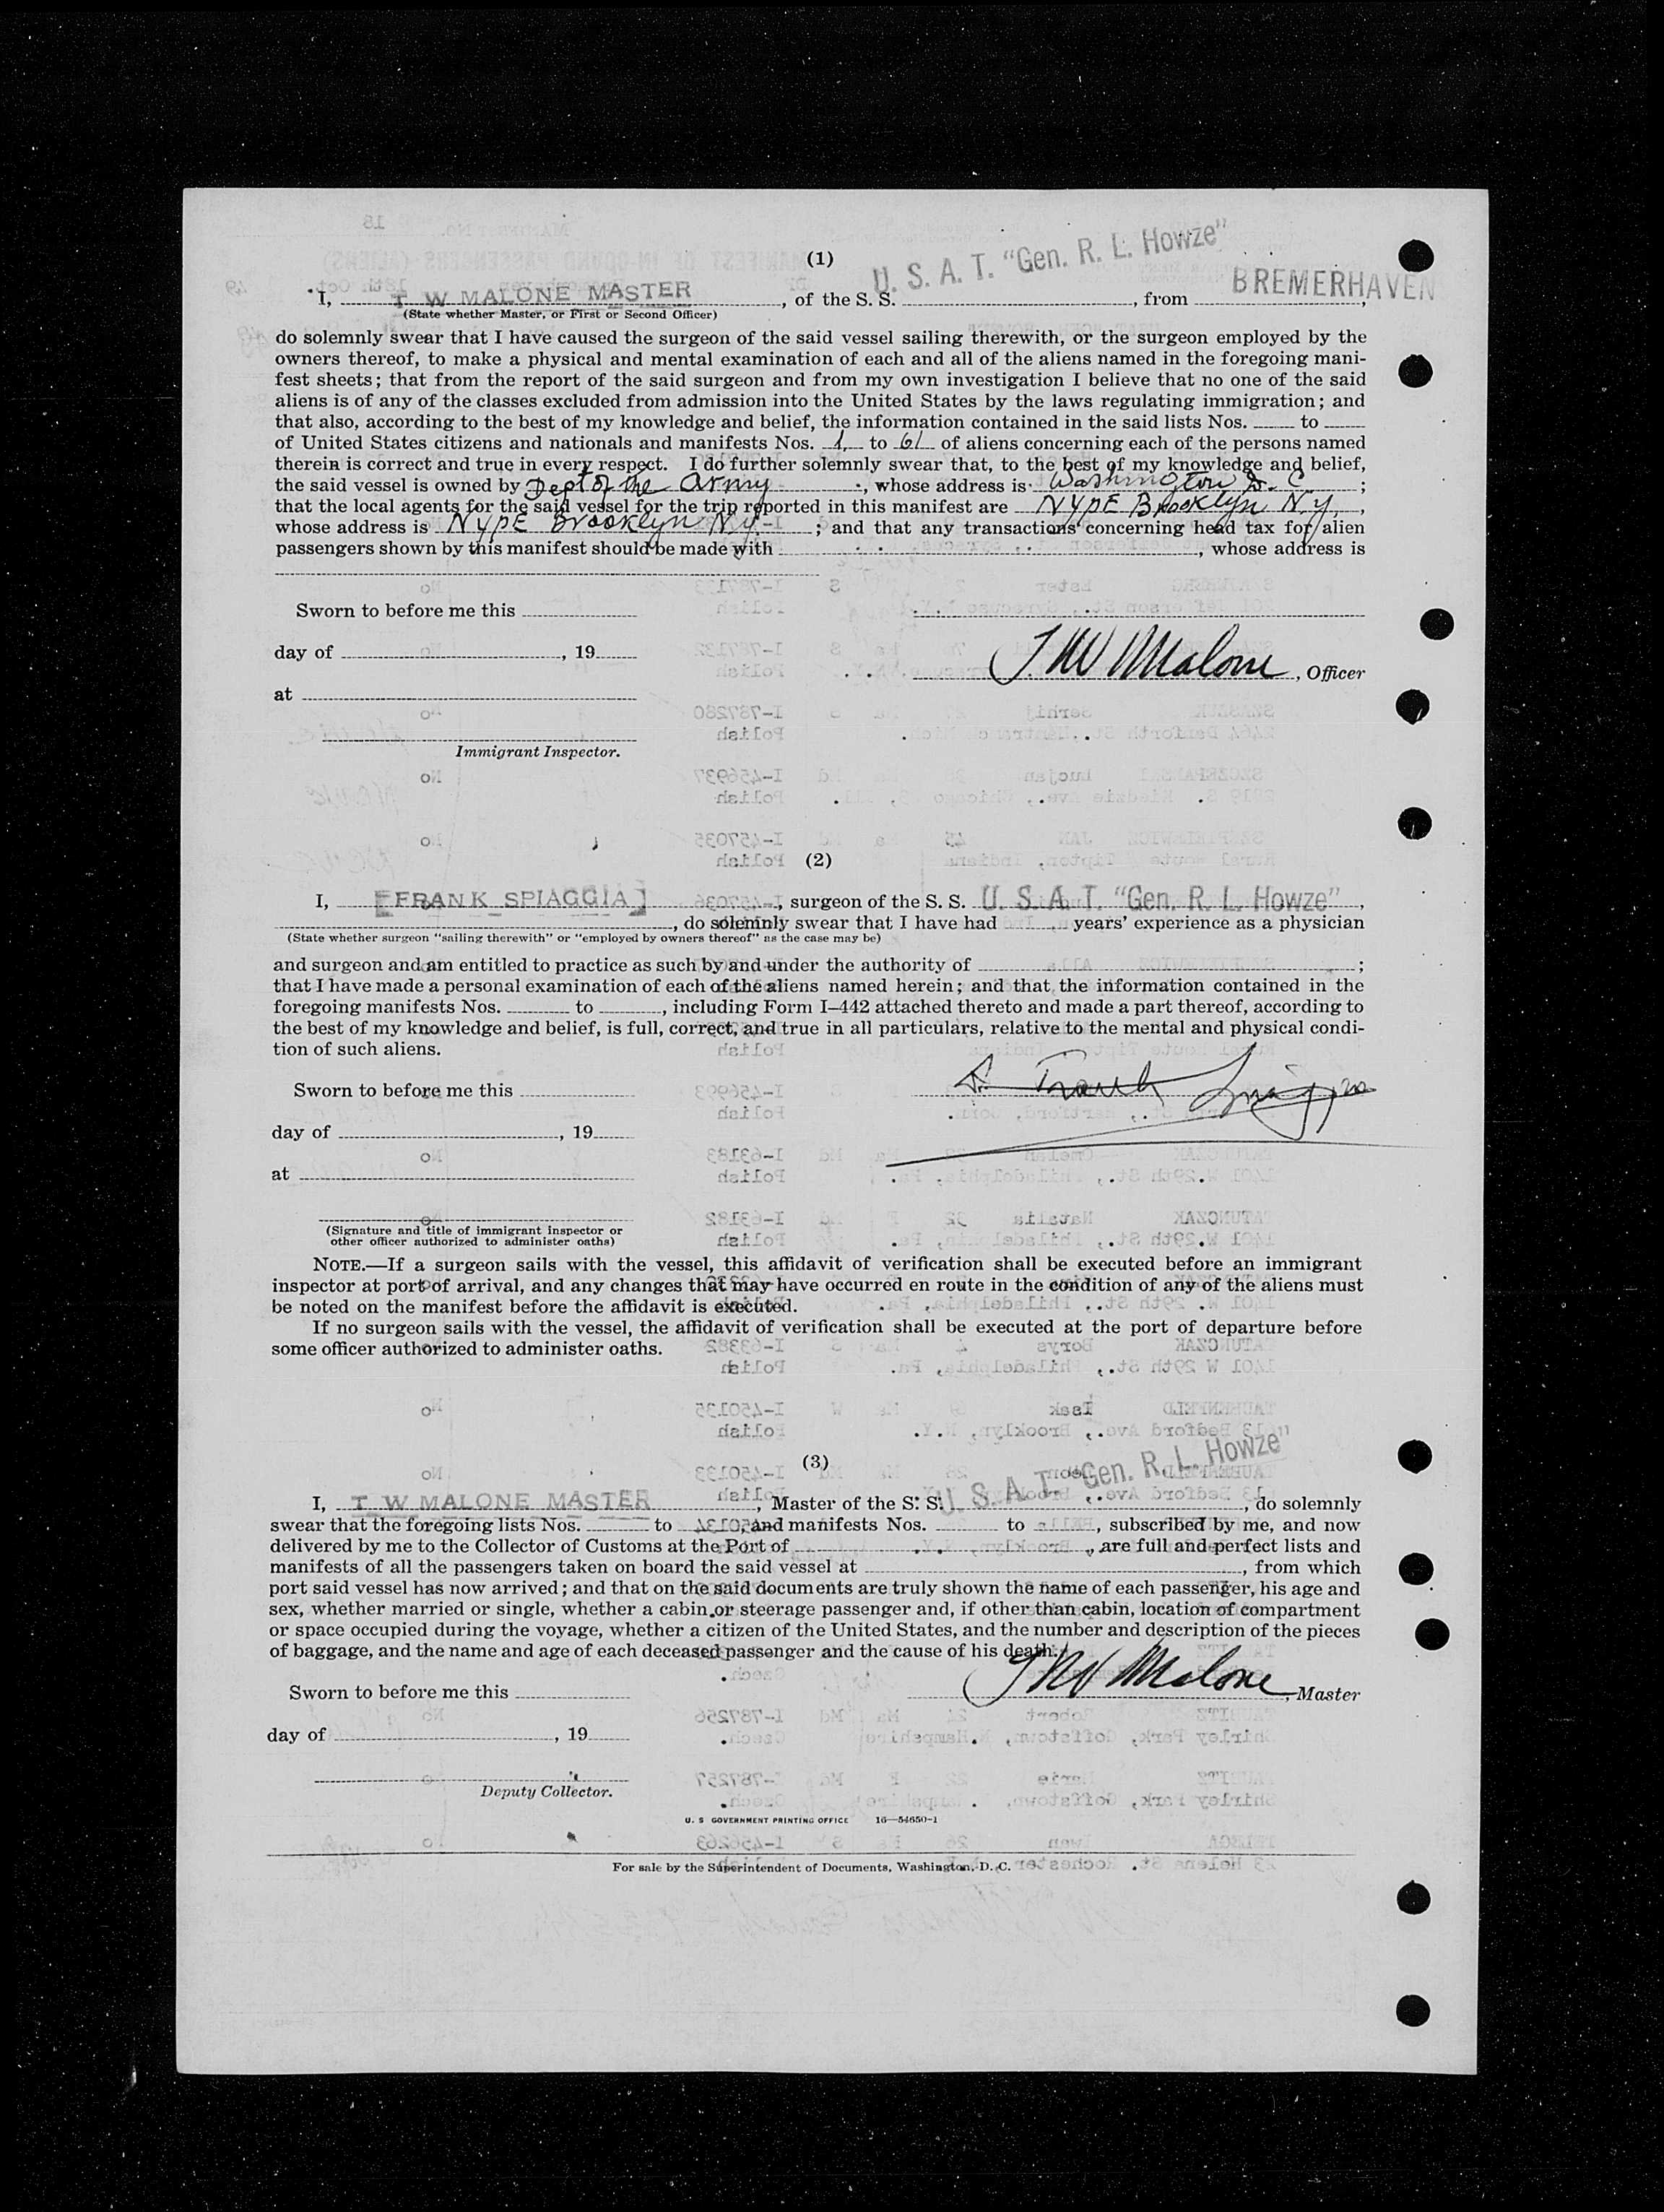 (1)
I, T W MALONE MASTER, of the S. S. U. S. A. T. "Gen. R. L. Howze", from BREMERHAVEN,
(State whether Master, or First or Second Officer)
do solemnly swear that I have caused the surgeon of the said vessel sailing therewith, or the surgeon employed by the
owners thereof, to make a physical and mental examination of each and all of the aliens named in the foregoing mani-
fest sheets; that from the report of the said surgeon and from my own investigation I believe that no one of the said
aliens is of any of the classes excluded from admission into the United States by the laws regulating immigration; and
that also, according to the best of my knowledge and belief, the information contained in the said lists Nos. ____ to ____
of United States citizens and nationals and manifests Nos. 1 to 61 of aliens concerning each of the persons named
therein is correct and true in every respect. I do further solemnly swear that, to the best of my knowledge and belief,
the said vessel is owned by Dept of the Army, whose address is Washington D. C;
that the local agents for the said vessel for the trip reported in this manifest are NYPE Brooklyn N.Y.,
whose address is NYPE Brooklyn N.Y.; and that any transactions concerning head tax for alien
passengers shown by this manifest should be made with ____, whose address is
Sworn to before me this ____
day of ____, 19____
T. W Malone, Officer
at ____
Immigrant Inspector.
(2)
I, [FRANK SPIAGGIA], surgeon of the S. S. U. S. A. T. "Gen. R. L. Howze",
____, do solemnly swear that I have had ____ years' experience as a physician
(State whether surgeon "sailing therewith" or "employed by owners thereof" as the case may be)
and surgeon and am entitled to practice as such by and under the authority of ____;
that I have made a personal examination of each of the aliens named herein; and that the information contained in the
foregoing manifests Nos. ____ to ____, including Form I-442 attached thereto and made a part thereof, according to
the best of my knowledge and belief, is full, correct, and true in all particulars, relative to the mental and physical condi-
tion of such aliens.
Frank Spiaggia
Sworn to before me this ____
day of ____, 19____
at ____
(Signature and title of immigrant inspector or
other officer authorized to administer oaths)
NOTE.—If a surgeon sails with the vessel, this affidavit of verification shall be executed before an immigrant
inspector at port of arrival, and any changes that may have occurred en route in the condition of any of the aliens must
be noted on the manifest before the affidavit is executed.
If no surgeon sails with the vessel, the affidavit of verification shall be executed at the port of departure before
some officer authorized to administer oaths.
(3)
I, T W MALONE MASTER, Master of the S. S. U. S. A. T. "Gen. R. L. Howze", do solemnly
swear that the foregoing lists Nos. ____ to ____, and manifests Nos. ____ to ____, subscribed by me, and now
delivered by me to the Collector of Customs at the Port of ____, are full and perfect lists and
manifests of all the passengers taken on board the said vessel at ____, from which
port said vessel has now arrived; and that on the said documents are truly shown the name of each passenger, his age and
sex, whether married or single, whether a cabin or steerage passenger and, if other than cabin, location of compartment
or space occupied during the voyage, whether a citizen of the United States, and the number and description of the pieces
of baggage, and the name and age of each deceased passenger and the cause of his death.
T W Malone, Master
Sworn to before me this ____
day of ____, 19____
Deputy Collector.
U. S GOVERNMENT PRINTING OFFICE 16—54650-1
For sale by the Superintendent of Documents, Washington, D. C.